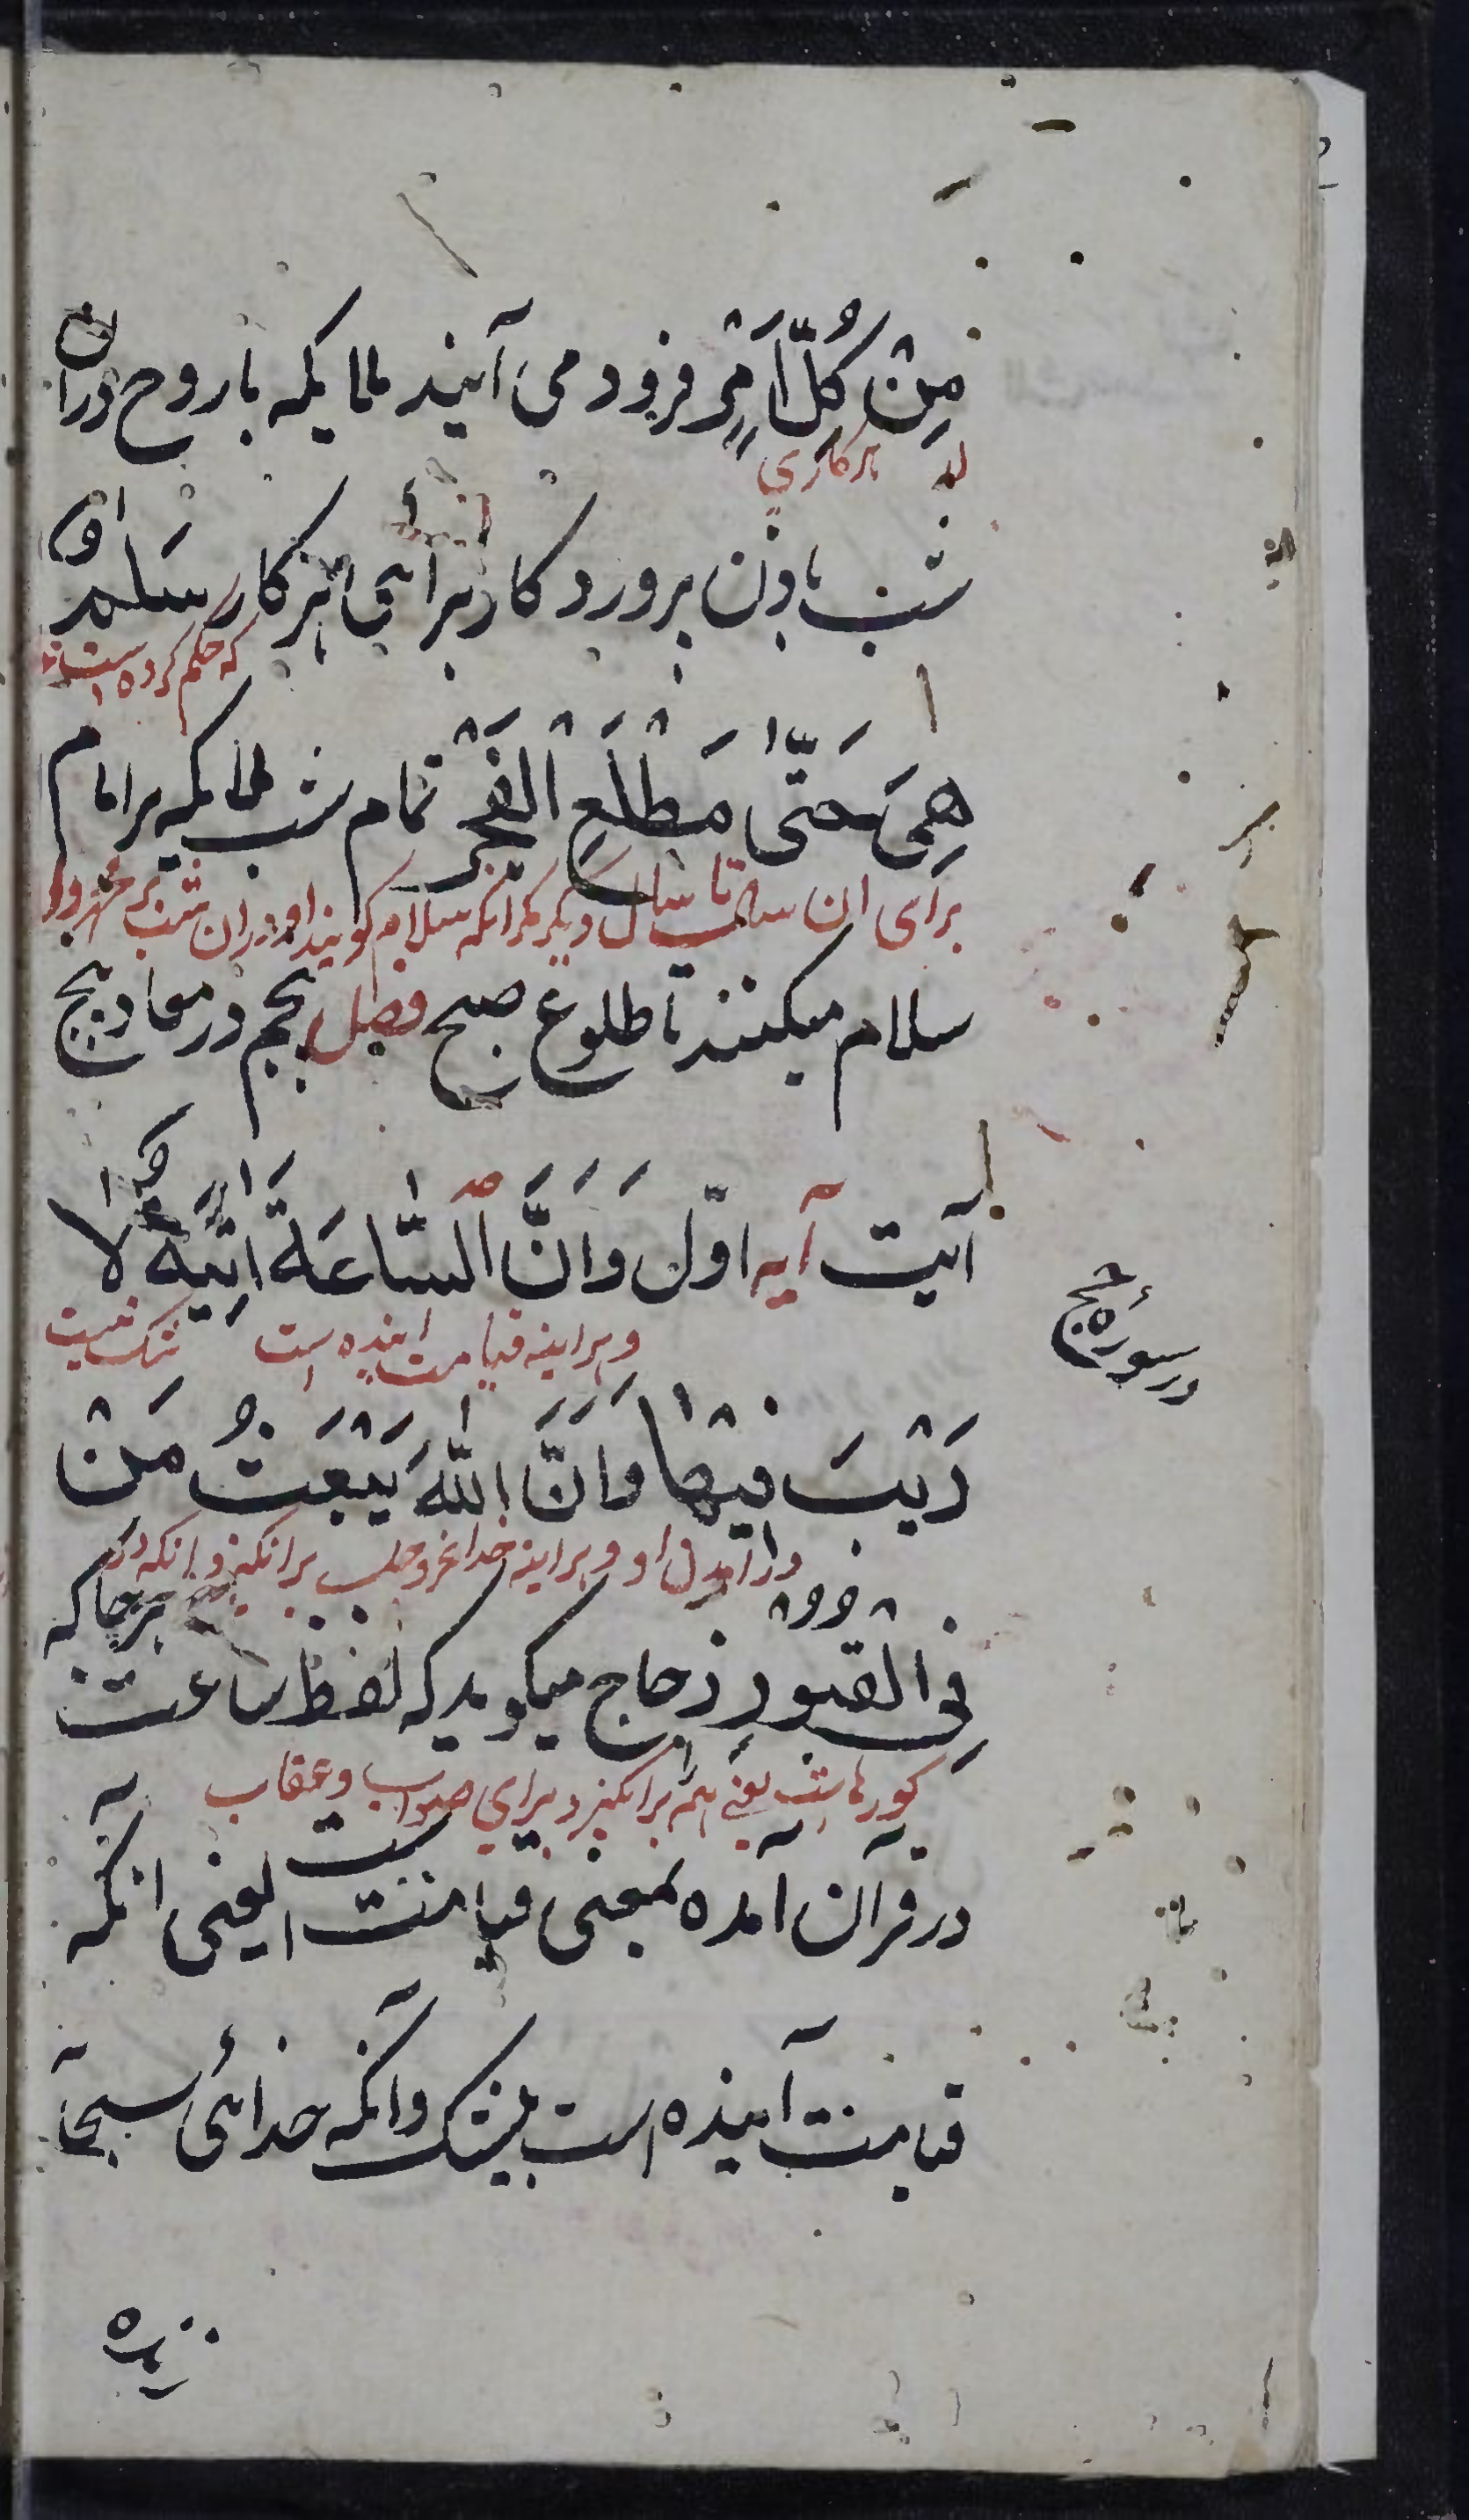 مِنْ كُلِّ اَمْرٍ فرود می آیند ملایکه با روح در آن
هر کاری
شب باذن پروردکار برایی هر کار سَلٰمٌ
که حکم کرده است
هِیَ حَتّٰی مَطْلَعِ الْفَجْرِ تمام شب ملایکه بر امام
برای ان سال تا سال دیکر مکر انکه سلام کویند او در ان شب بر
سلام میکنند تا طلوع صبح فصل پنجم در معاد پنج
آیت آیه اوّل وَاَنَّ السَّاعَةَ اٰتِیَةٌ لَا
و هراینه قیامت اینده است شک نیست
در سورۀ حج
رَیْبَ فِیْهَا وَاَنَّ اللّٰهَ یَبْعَثُ مَنْ
در آمدن او و هراینه خدا عزوجل بر انکیزد انکه در
فِی الْقُبُورِ زجاج میکوید که لفظ ساعت هرجا که
کورها است یعنی هم برانکیزد برای صواب و عقاب
در قرآن آمده بمعنی قیامت است یعنی آنکه
قیامت آینده است بیشک وآنکه خدائی سبحآ
زنده